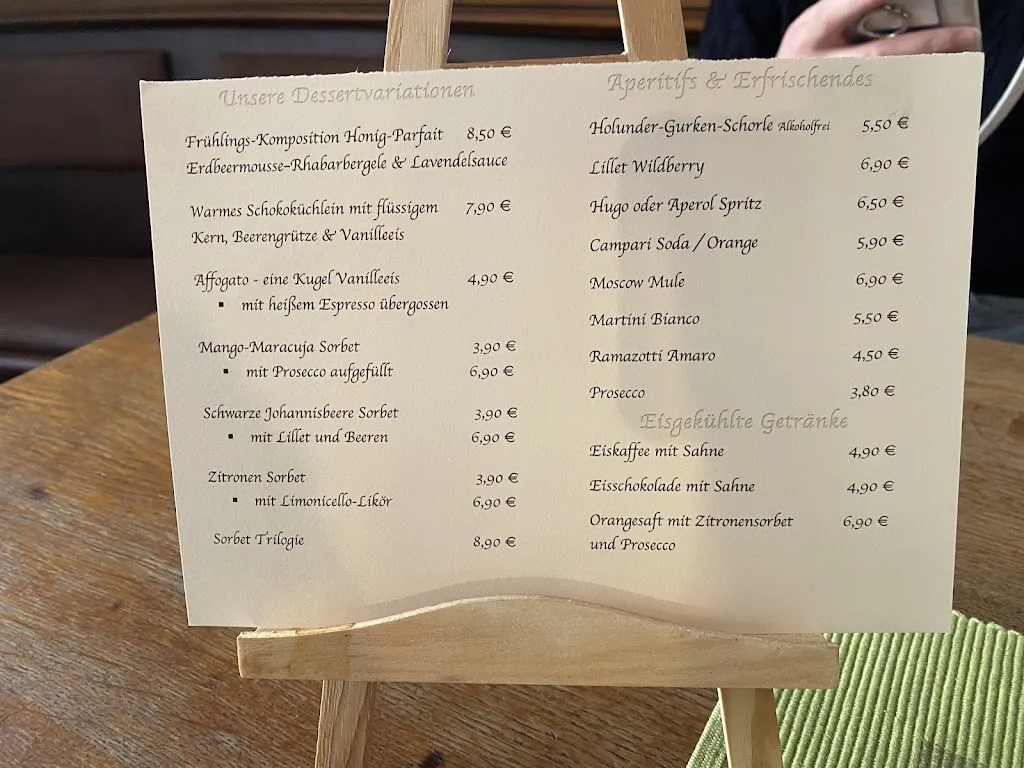 Unsere Dessertvariationen
Frühlings-Komposition Honig-Parfait 8,50 €
Erdbeermousse-Rhabarbergele & Lavendelsauce
Warmes Schokoküchlein mit flüssigem 7,90 €
Kern, Beerengrütze & Vanilleeis
Affogato - eine Kugel Vanilleeis 4,90 €
▪ mit heißem Espresso übergossen
Mango-Maracuja Sorbet 3,90 €
▪ mit Prosecco aufgefüllt 6,90 €
Schwarze Johannisbeere Sorbet 3,90 €
▪ mit Lillet und Beeren 6,90 €
Zitronen Sorbet 3,90 €
▪ mit Limonicello-Likör 6,90 €
Sorbet Trilogie 8,90 €
Aperitifs & Erfrischendes
Holunder-Gurken-Schorle Alkoholfrei 5,50 €
Lillet Wildberry 6,90 €
Hugo oder Aperol Spritz 6,50 €
Campari Soda / Orange 5,90 €
Moscow Mule 6,90 €
Martini Bianco 5,50 €
Ramazotti Amaro 4,50 €
Prosecco 3,80 €
Eisgekühlte Getränke
Eiskaffee mit Sahne 4,90 €
Eisschokolade mit Sahne 4,90 €
Orangesaft mit Zitronensorbet 6,90 €
und Prosecco